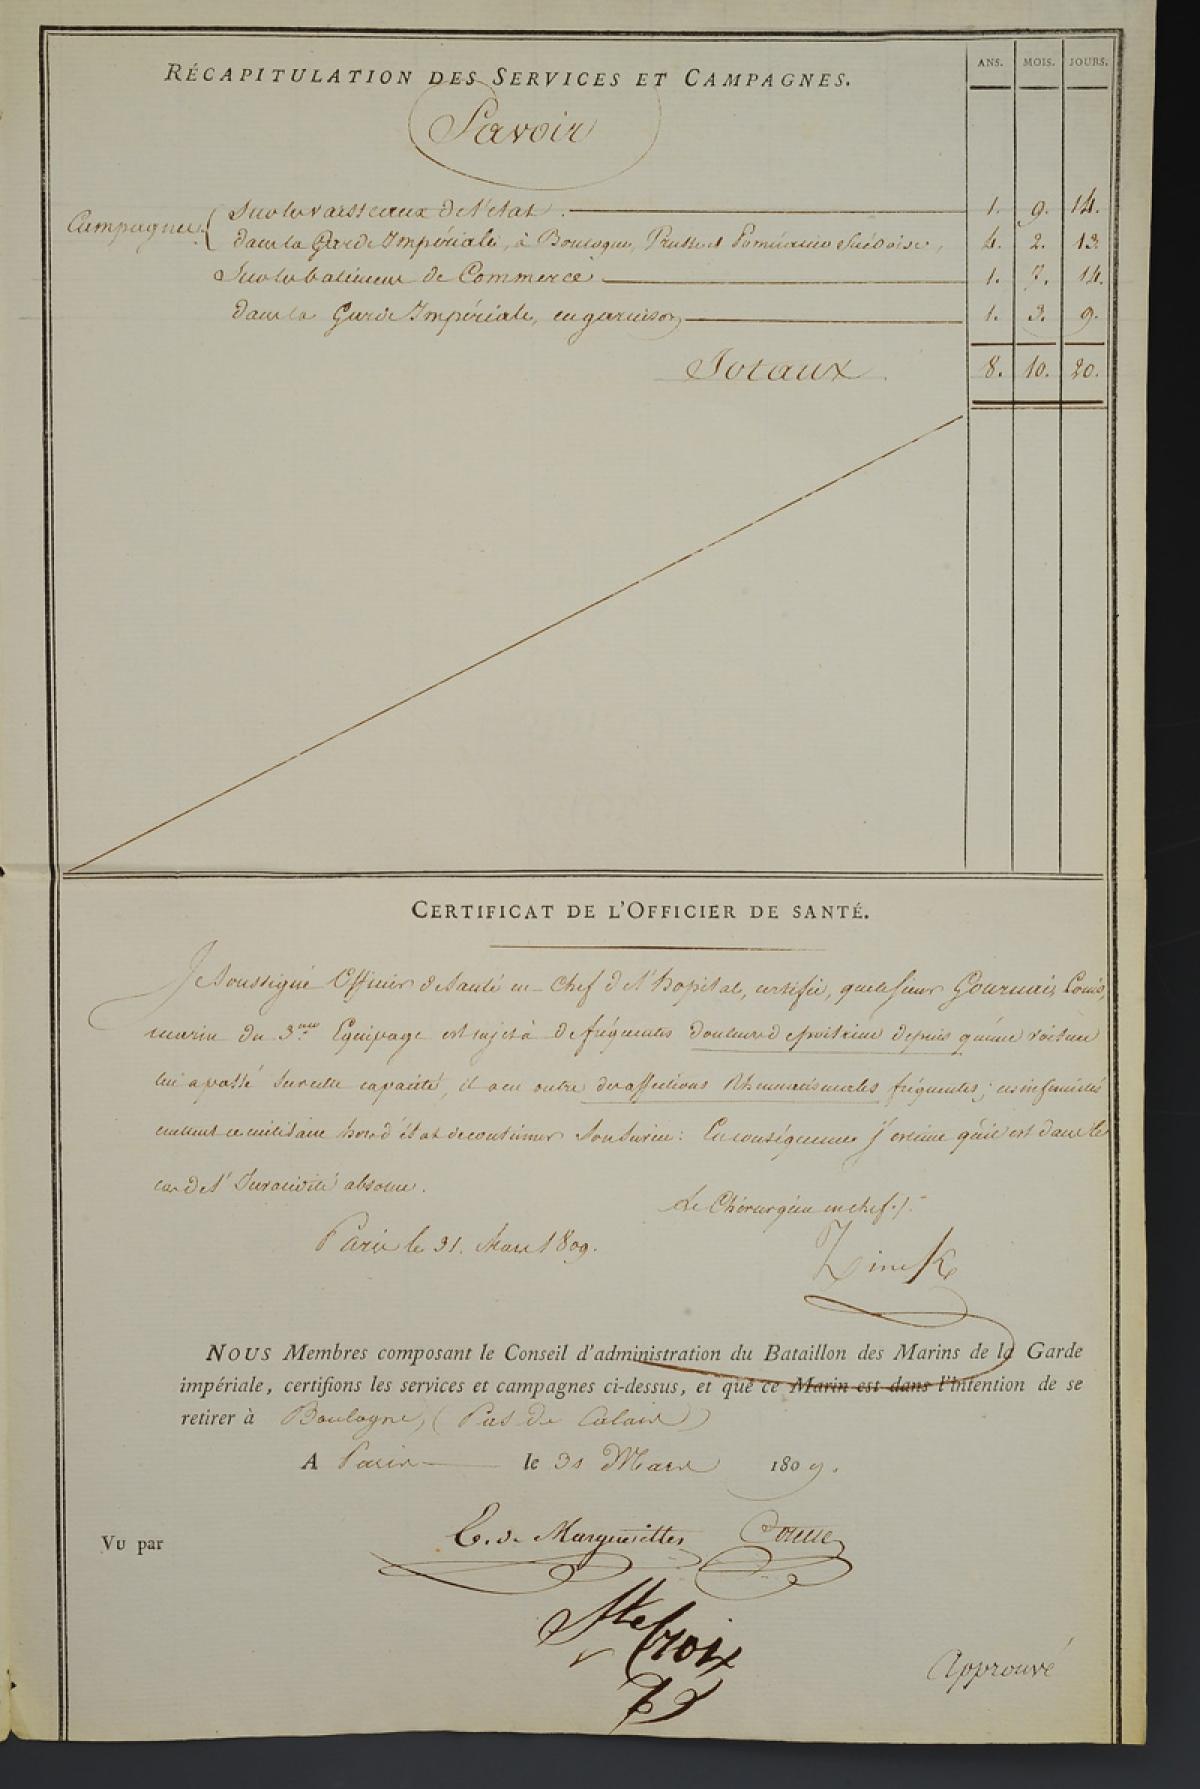 RÉCAPITULATION DES SERVICES ET CAMPAGNES.
ANS. MOIS. JOURS.
Savoir
Campagnes
Sur les vaisseaux de l'état. 1. 9. 14.
dans la Garde Impériale, à Boulogne, Prusse et Poméranie Suédoise, 4. 2. 13.
Sur les batimens de Commerce 1. 7. 14.
dans la Garde Impériale, en garnison 1. 3. 9.
Totaux 8. 10. 20.
CERTIFICAT DE L'OFFICIER DE SANTÉ.
Je Soussigné Officier de Santé en Chef de l'hopital, certifie, que le Sieur Gournais, Louis,
marin du 3me Equipage est sujet à de fréquentes douleurs de poitrine depuis qu'une voiture
lui a passé sur cette capacité, il a en outre des affections Rhumatismales fréquentes; ces infirmités
mettent ce militaire hors d'état de continuer Son Service: En conséquence j'estime qu'il est dans le
cas de l' absolue.
Le Chirurgien en chef
Paris le 31. Mars 1809.
Zinck
NOUS Membres composant le Conseil d'administration du Bataillon des Marins de la Garde
impériale, certifions les services et campagnes ci-dessus, et que ce Marin est dans l'intention de se
retirer à Boulogne, (Pas de Calais)
A Paris le 31 Mars 1809.
VU par
C. de Marguerittes
Ste Croix
Approuvé